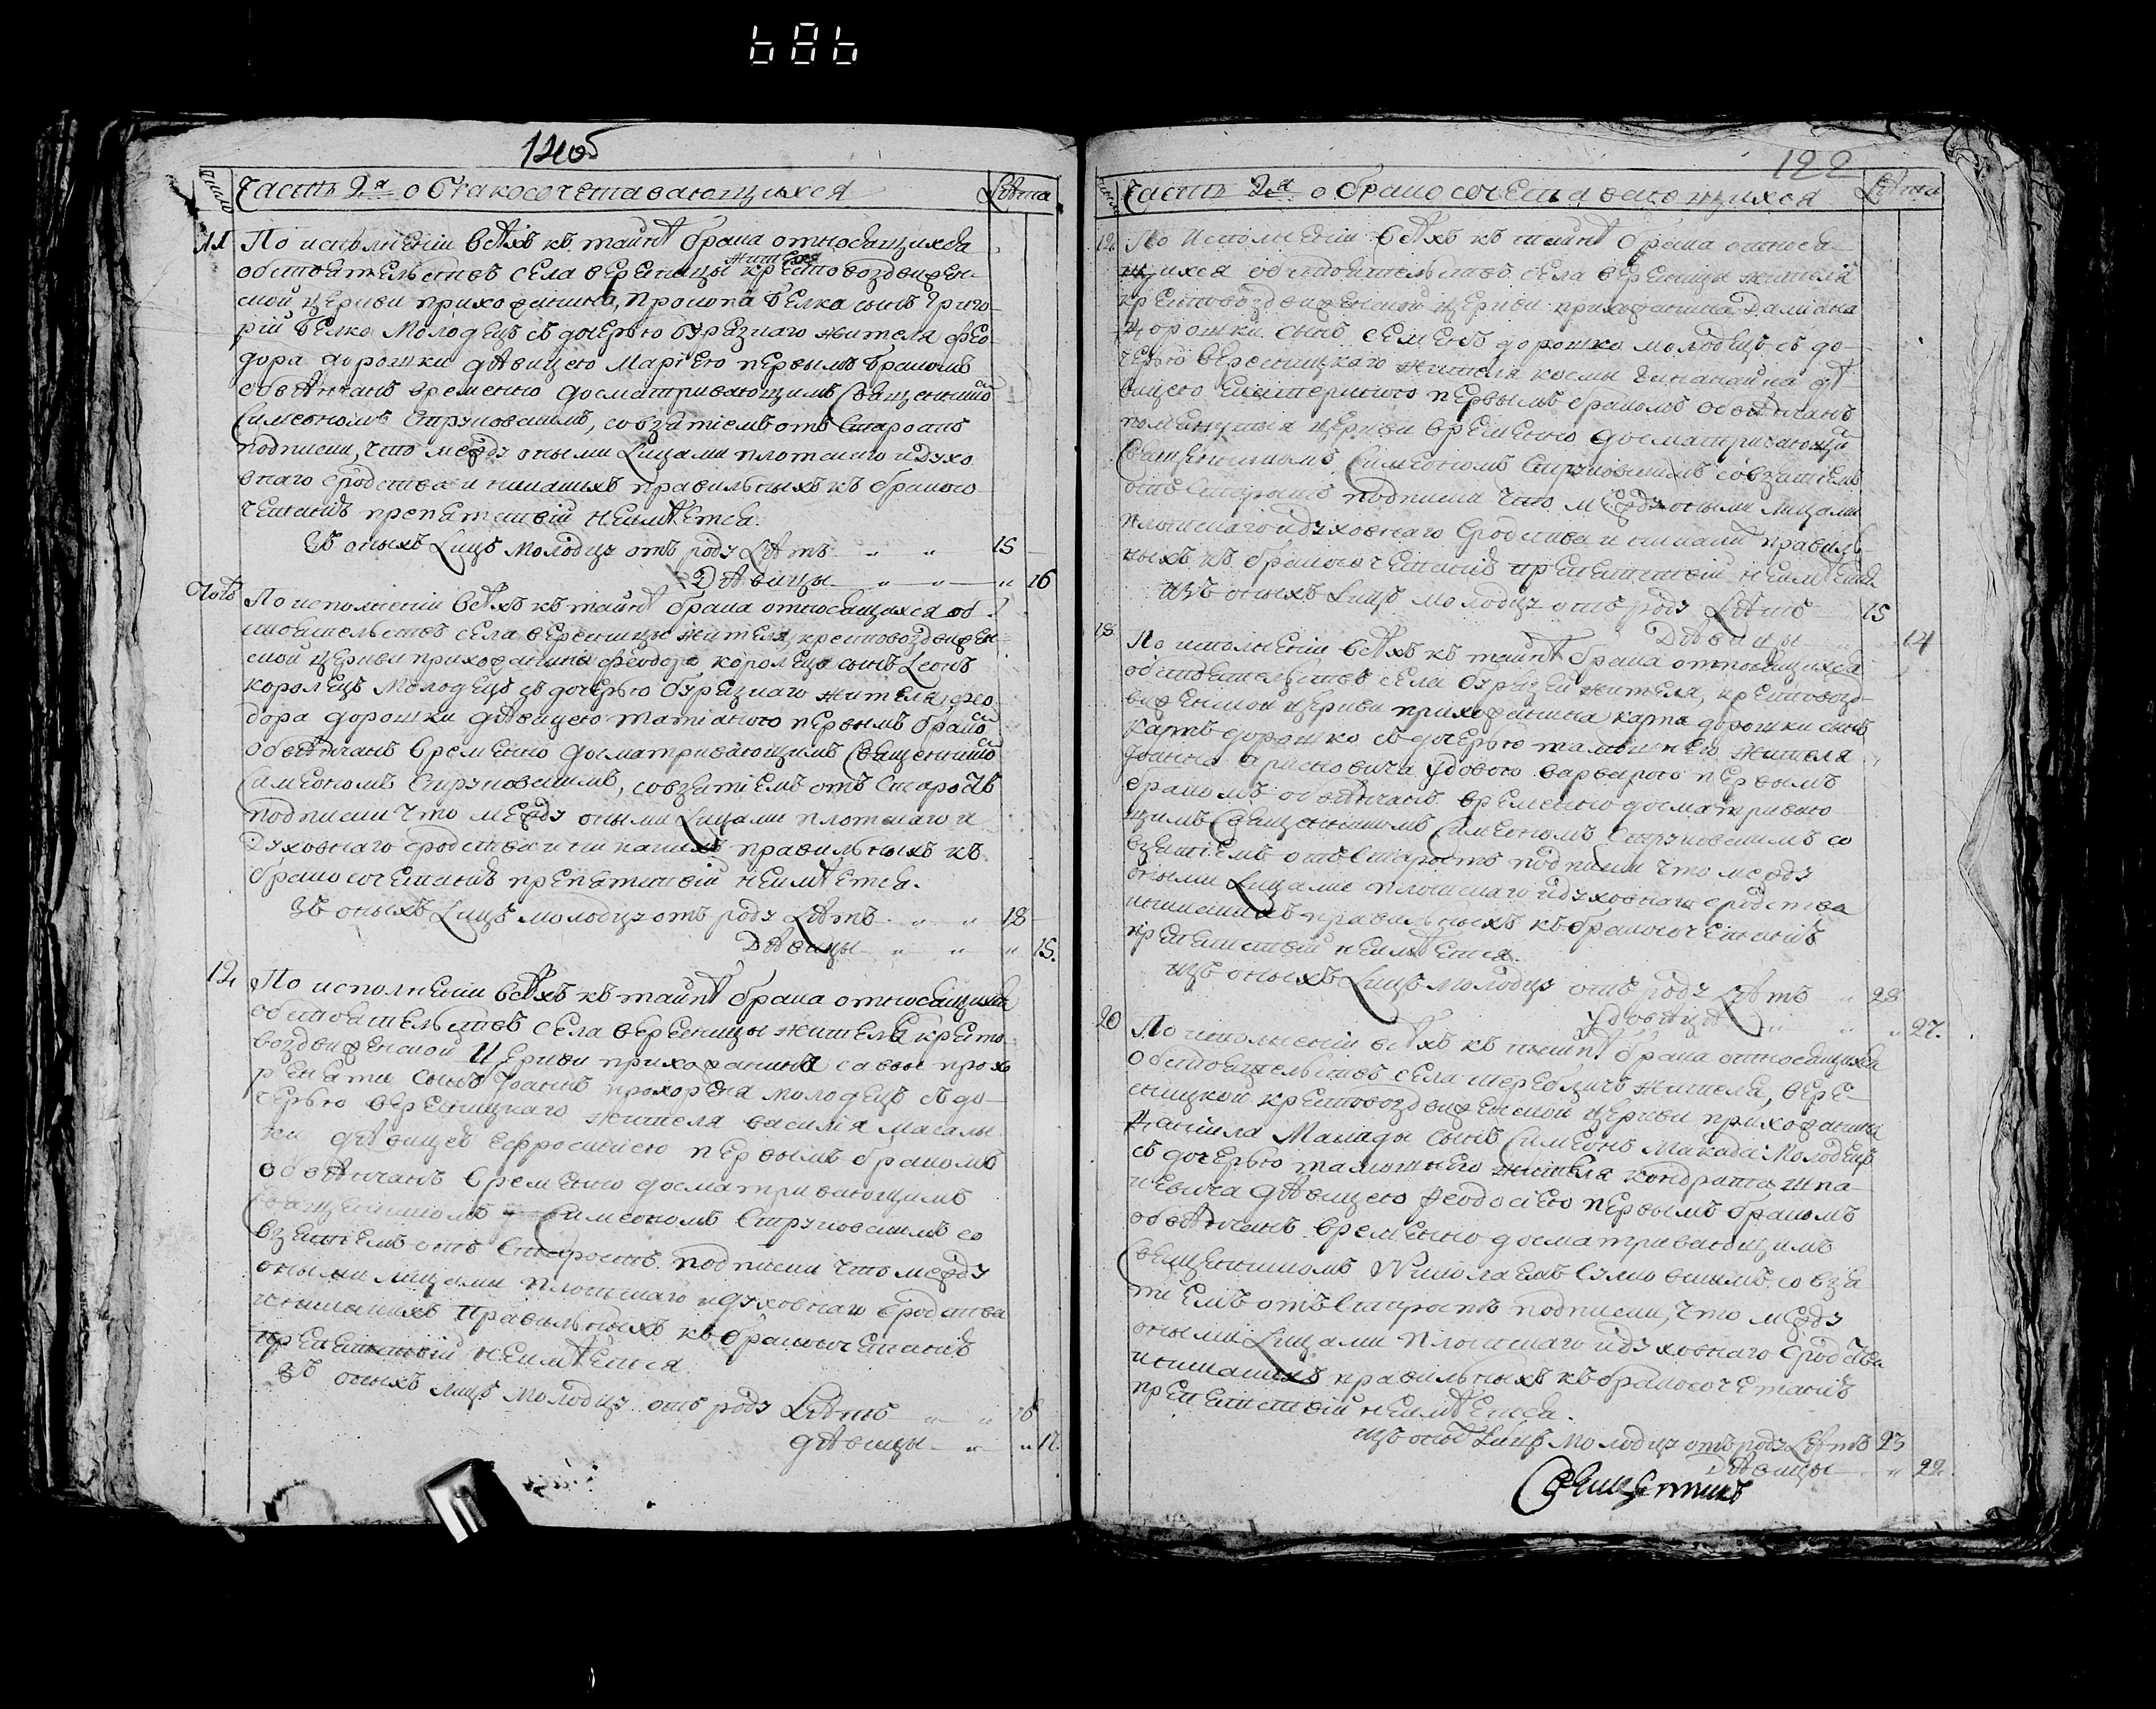 686
число Часть 2я о бракосочетавающихся Лѣта
11 По исполненіи всѣхъ къ тайнѣ брака относящихся
жителя
обстоятельствъ села вересницы крестовоздвижен-
ской церкви прихожанина, Прокопа Белка сынъ Григо-
рій Белко молодецъ съ дочерью буразнаго жителя Фео-
дора дорошки дѣвицею Маріею первымъ бракомъ
обвѣнчанъ временно досматривающимъ Священникомъ
Симеономъ Струковскимъ, со взятіемъ отъ Старостъ
подписки, что между оными Лицами плотскаго и Духо
внаго сродства и никакихъ правильныхъ къ бракосо-
четанію препятствій неимѣется.
Зъ оныхъ Лицъ молодцу отъ роду Лѣтъ „ „ 15
Дѣвицы „ „ „ 16
Тогожъ По исполненіи всѣхъ къ тайнѣ брака относящихся об-
стоятельствъ села вересницы жителя, крестовоздвижен-
ской церкви прихожанина Феодора корольца сынъ Леонъ
королецъ молодецъ съ дочерью буразнаго жителя, Фео-
дора дорошки дѣвицею татіаною первымъ бракомъ
обвѣнчанъ временно досматривающимъ Священникомъ
Симеономъ Струковскимъ, со взятіемъ отъ Старостъ
подписки что между оными Лицами плотскаго и
Духовнаго сродства и никакихъ правильныхъ къ
бракосочетанію препятствій неимѣется.
Зъ оныхъ Лицъ молодцу отъ роду Лѣтъ „ „ 18
Дѣвицы „ „ „ 15.
12 По исполненіи всѣхъ къ тайнѣ брака относящихся
обстоятельствъ села вересницы жителя кресто-
воздвиженской Церкви прихожанина савы
сынъ Іоаннъ молодецъ съ до-
черью вересницкаго жителя василія
дѣвицею Ефросиніею первымъ бракомъ
обвѣнчанъ временно досматривающимъ
Священникомъ Симеономъ Струковскимъ со
взятіемъ отъ Старостъ подписки что между
оными лицами плотскаго и духовнаго сродства
и никакихъ правильныхъ къ бракосочетанію
препятствій неимѣется
Зъ оныхъ лицъ молодцу отъ роду Лѣтъ „ „
дѣвицы „ „
122
Часть 2я о бракосочетавающихся Лѣта
По исполненіи всѣхъ къ тайнѣ брака относя-
щихся обстоятельствъ села вересницы жителя
крестовоздвиженской церкви прихожанина Даміана
Дорошки сынъ Семенъ дорошко молодецъ съ до-
черью вересницкаго жителя космы дѣ-
вицею Екатериною первымъ бракомъ обвѣнчанъ
церкви временно досматривающимъ
Священникомъ Симеономъ Струковскимъ со взятіемъ
отъ Старостъ подписки что между оными лицами
плотскаго и духовнаго сродства и никакихъ правиль-
ныхъ къ бракосочетанію препятствій неимѣется
изъ оныхъ Лицъ молодцу отъ роду Лѣтъ 15
Дѣвицы „ 14
По исполненіи всѣхъ къ тайнѣ брака относящихся
обстоятельствъ села жителя, крестовозд-
виженской церкви прихожанина карпа дорошки сынъ
дорошко съ дочерью тамошнего жителя
вдовою варварою первымъ
бракомъ обвѣнчанъ временно досматриваю
щимъ Священникомъ Симеономъ Струковскимъ со
взятіемъ отъ Старостъ подписки что между
оными Лицами плотскаго и духовнаго сродства
и никакихъ правильныхъ къ бракосочетанію
препятствій неимѣется.
изъ оныхъ Лицъ молодцу отъ роду Лѣтъ „ 28
„ „ 27.
20 По исполненіи всѣхъ къ тайнѣ брака относящихся
обстоятельствъ села жителя, вере-
сницкой крестовоздвиженской церкви прихожанина
Даніила Макады сынъ Симеонъ Макада молодецъ
съ дочерью тамошнего жителя кондрата
дѣвицею Феодосіею первымъ бракомъ
обвѣнчанъ временно досматривающимъ
Священникомъ Николаемъ со взя
тіемъ отъ Старостъ подписки, что между
оными Лицами плотскаго и духовнаго сродства
и никакихъ правильныхъ къ бракосочетанію
препятствій неимѣется.
изъ оныхъ Лицъ молодцу отъ роду Лѣтъ 23
Дѣвицы „ 22.
Священникъ